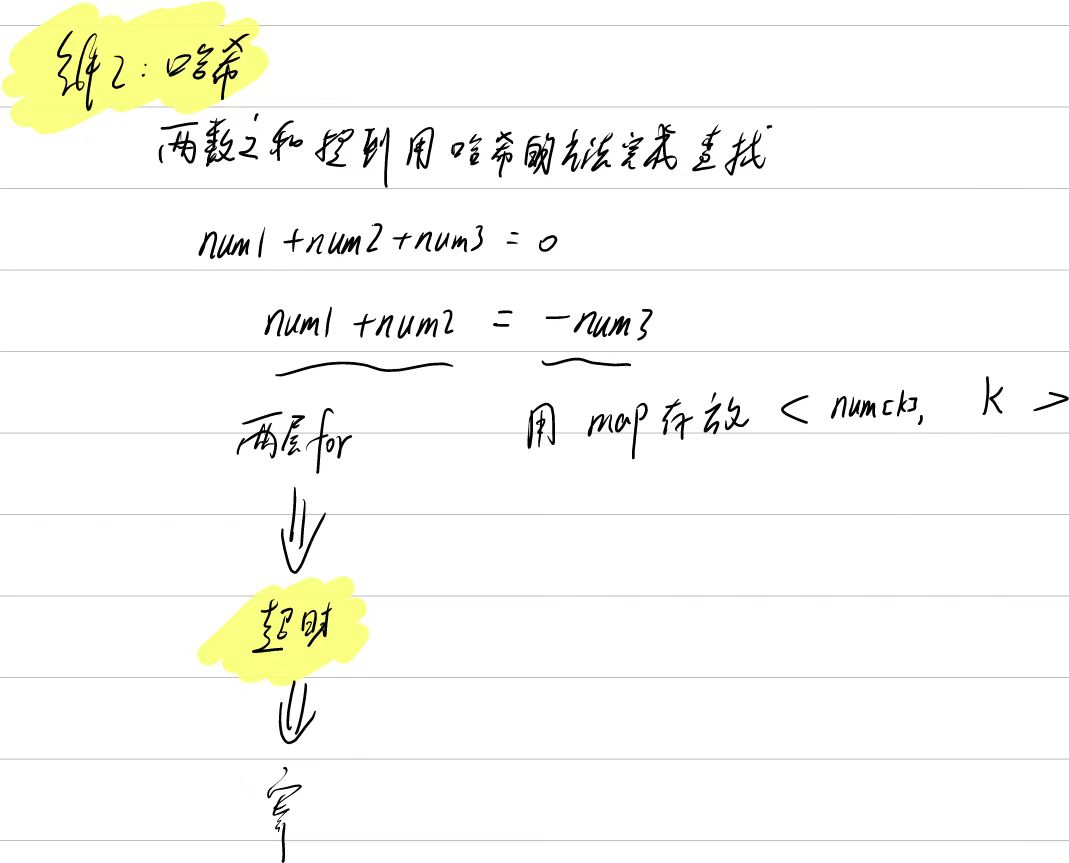 维2：哈希
两数之和提到用哈希的方法完成查找
num1+num2+num3=0
num1+num2 = -num3
两层for 用 map存放 < num[k], k >
超时